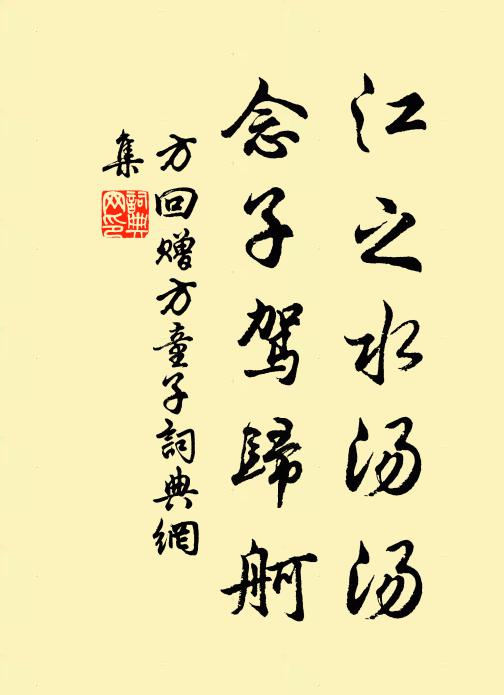 江之水汤汤
念子驾歸舸
方回赠方童子詞典網
集
詞典
网印